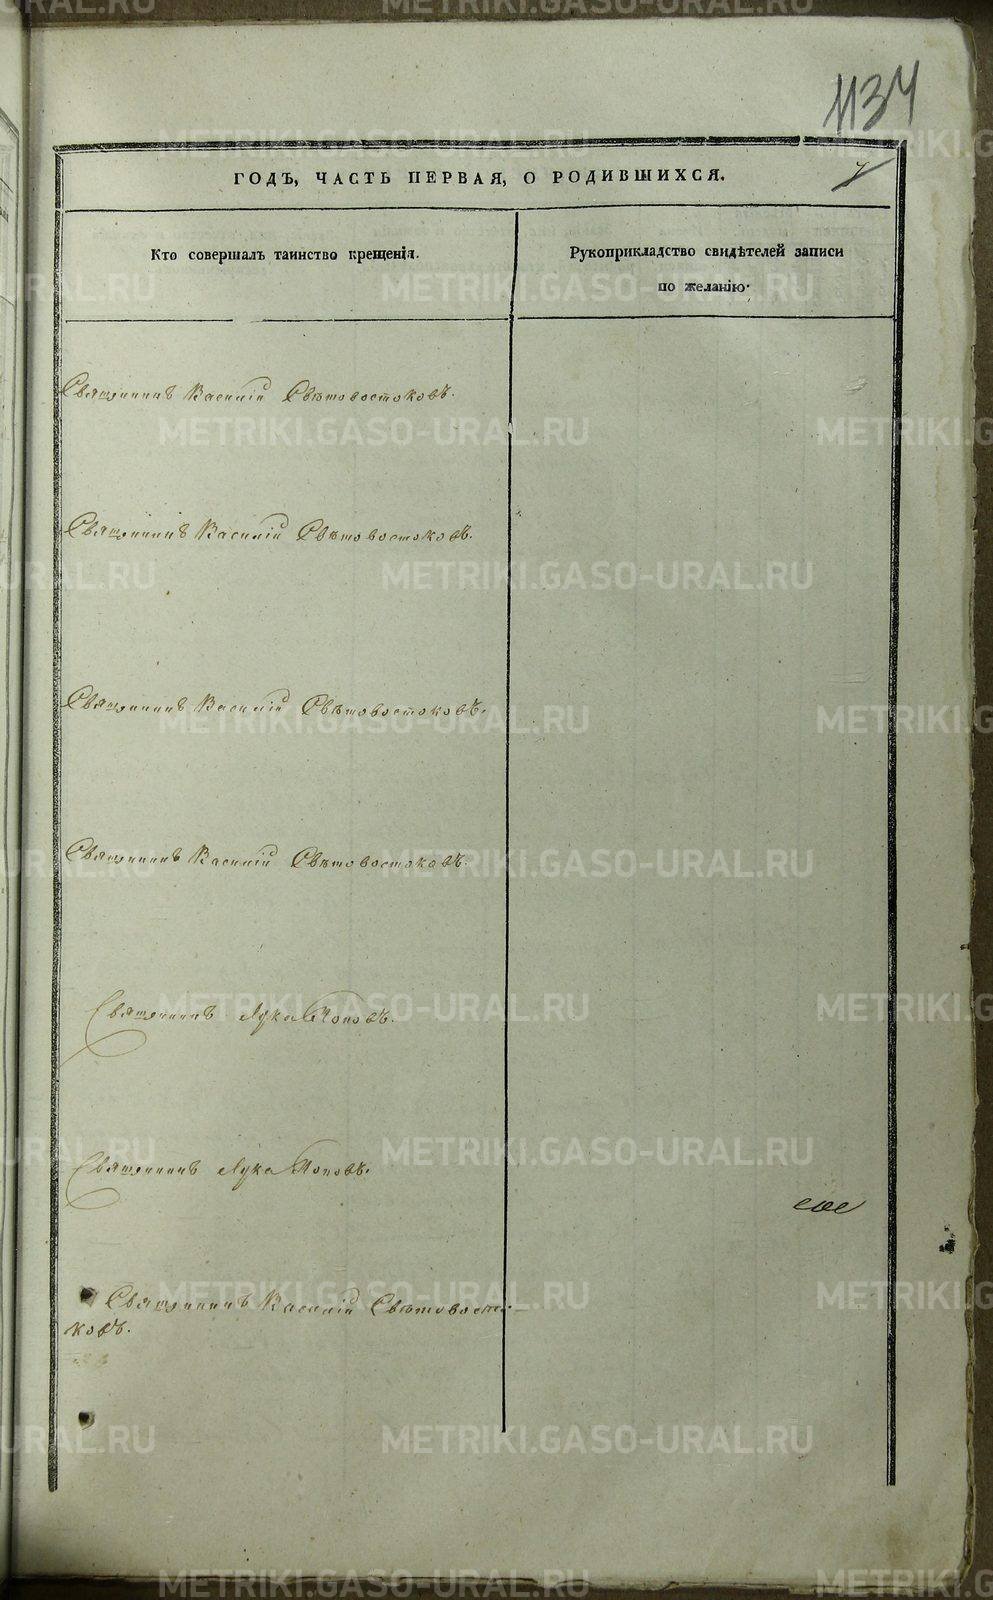 1134
7
ГОДЪ, ЧАСТЬ ПЕРВАЯ, О РОДИВШИХСЯ.
Кто совершалъ таинство крещенія.
Рукоприкладство свидѣтелей записи
по желанію.
Священникъ Василій Свѣтовостоковъ.
Священникъ Василій Свѣтовостоковъ.
Священникъ Василій Свѣтовостоковъ.
Священникъ Василій Свѣтовостоковъ.
Священникъ Лука Поповъ.
Священникъ Лука Поповъ.
Священникъ Василій Свѣтовосто-
ковъ.
METRIKI.GASO-URAL.RU